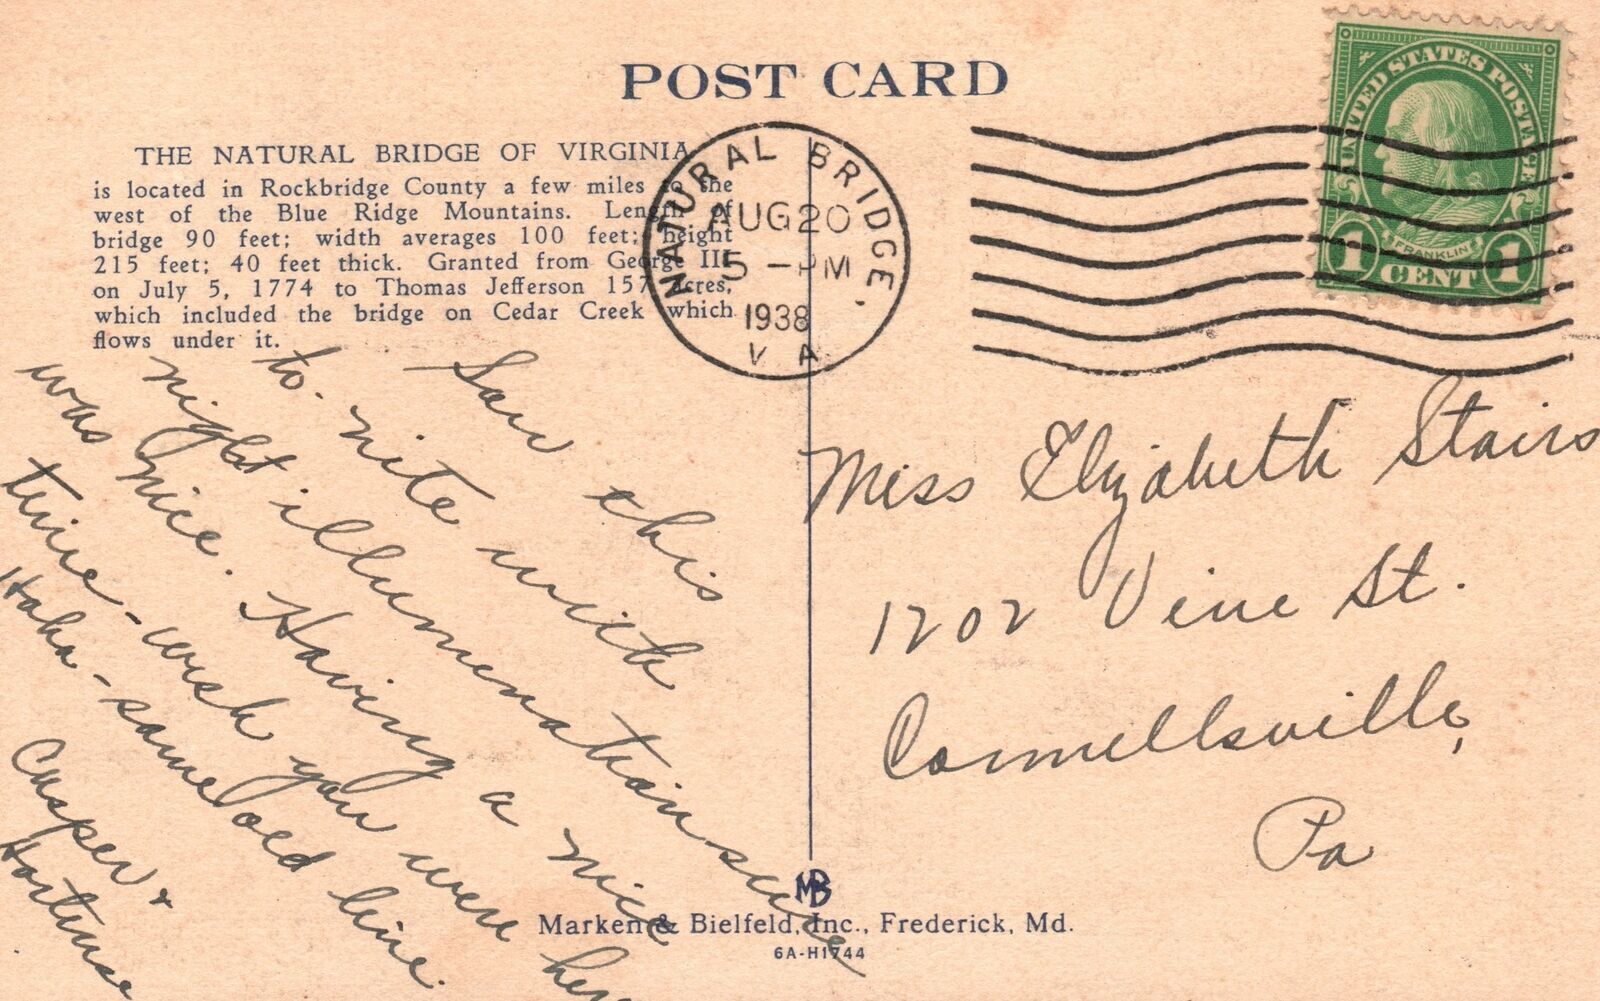 POST CARD
THE NATURAL BRIDGE OF VIRGINIA
is located in Rockbridge County a few miles to the
west of the Blue Ridge Mountains. Length of
bridge 90 feet; width averages 100 feet; height
215 feet; 40 feet thick. Granted from George III
on July 5, 1774 to Thomas Jefferson 157 acres,
which included the bridge on Cedar Creek which
flows under it.
NATURAL BRIDGE.
AUG 20
5 - PM
1938
VA
UNITED STATES POSTAGE
FRANKLIN
1 CENT 1
Saw this
to-nite with
night illumination
was nice. Having a nice
time - wish you were here
Haha - same old line.
Casper &
Hortense
Miss Elizabeth Stairs
1202 Vine St.
Connellsville,
Pa
MB
Marken & Bielfeld, Inc., Frederick, Md.
6A-H1744